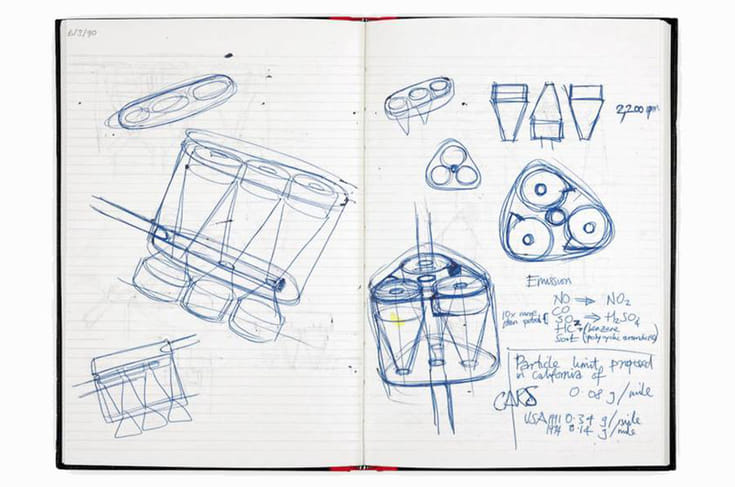 6/3/90
2,200 rpm
Emission
NO ⇒ NO₂
CO
10x more than petrol { SO₂ ⇒ H₂SO₄
HC + (benzene
Soot (polycyclic aromatics)
Particle limit proposed
in California of
CARS 0.08 g/mile
USA 1991 0.34 g/mile
1994 0.14 g/mile